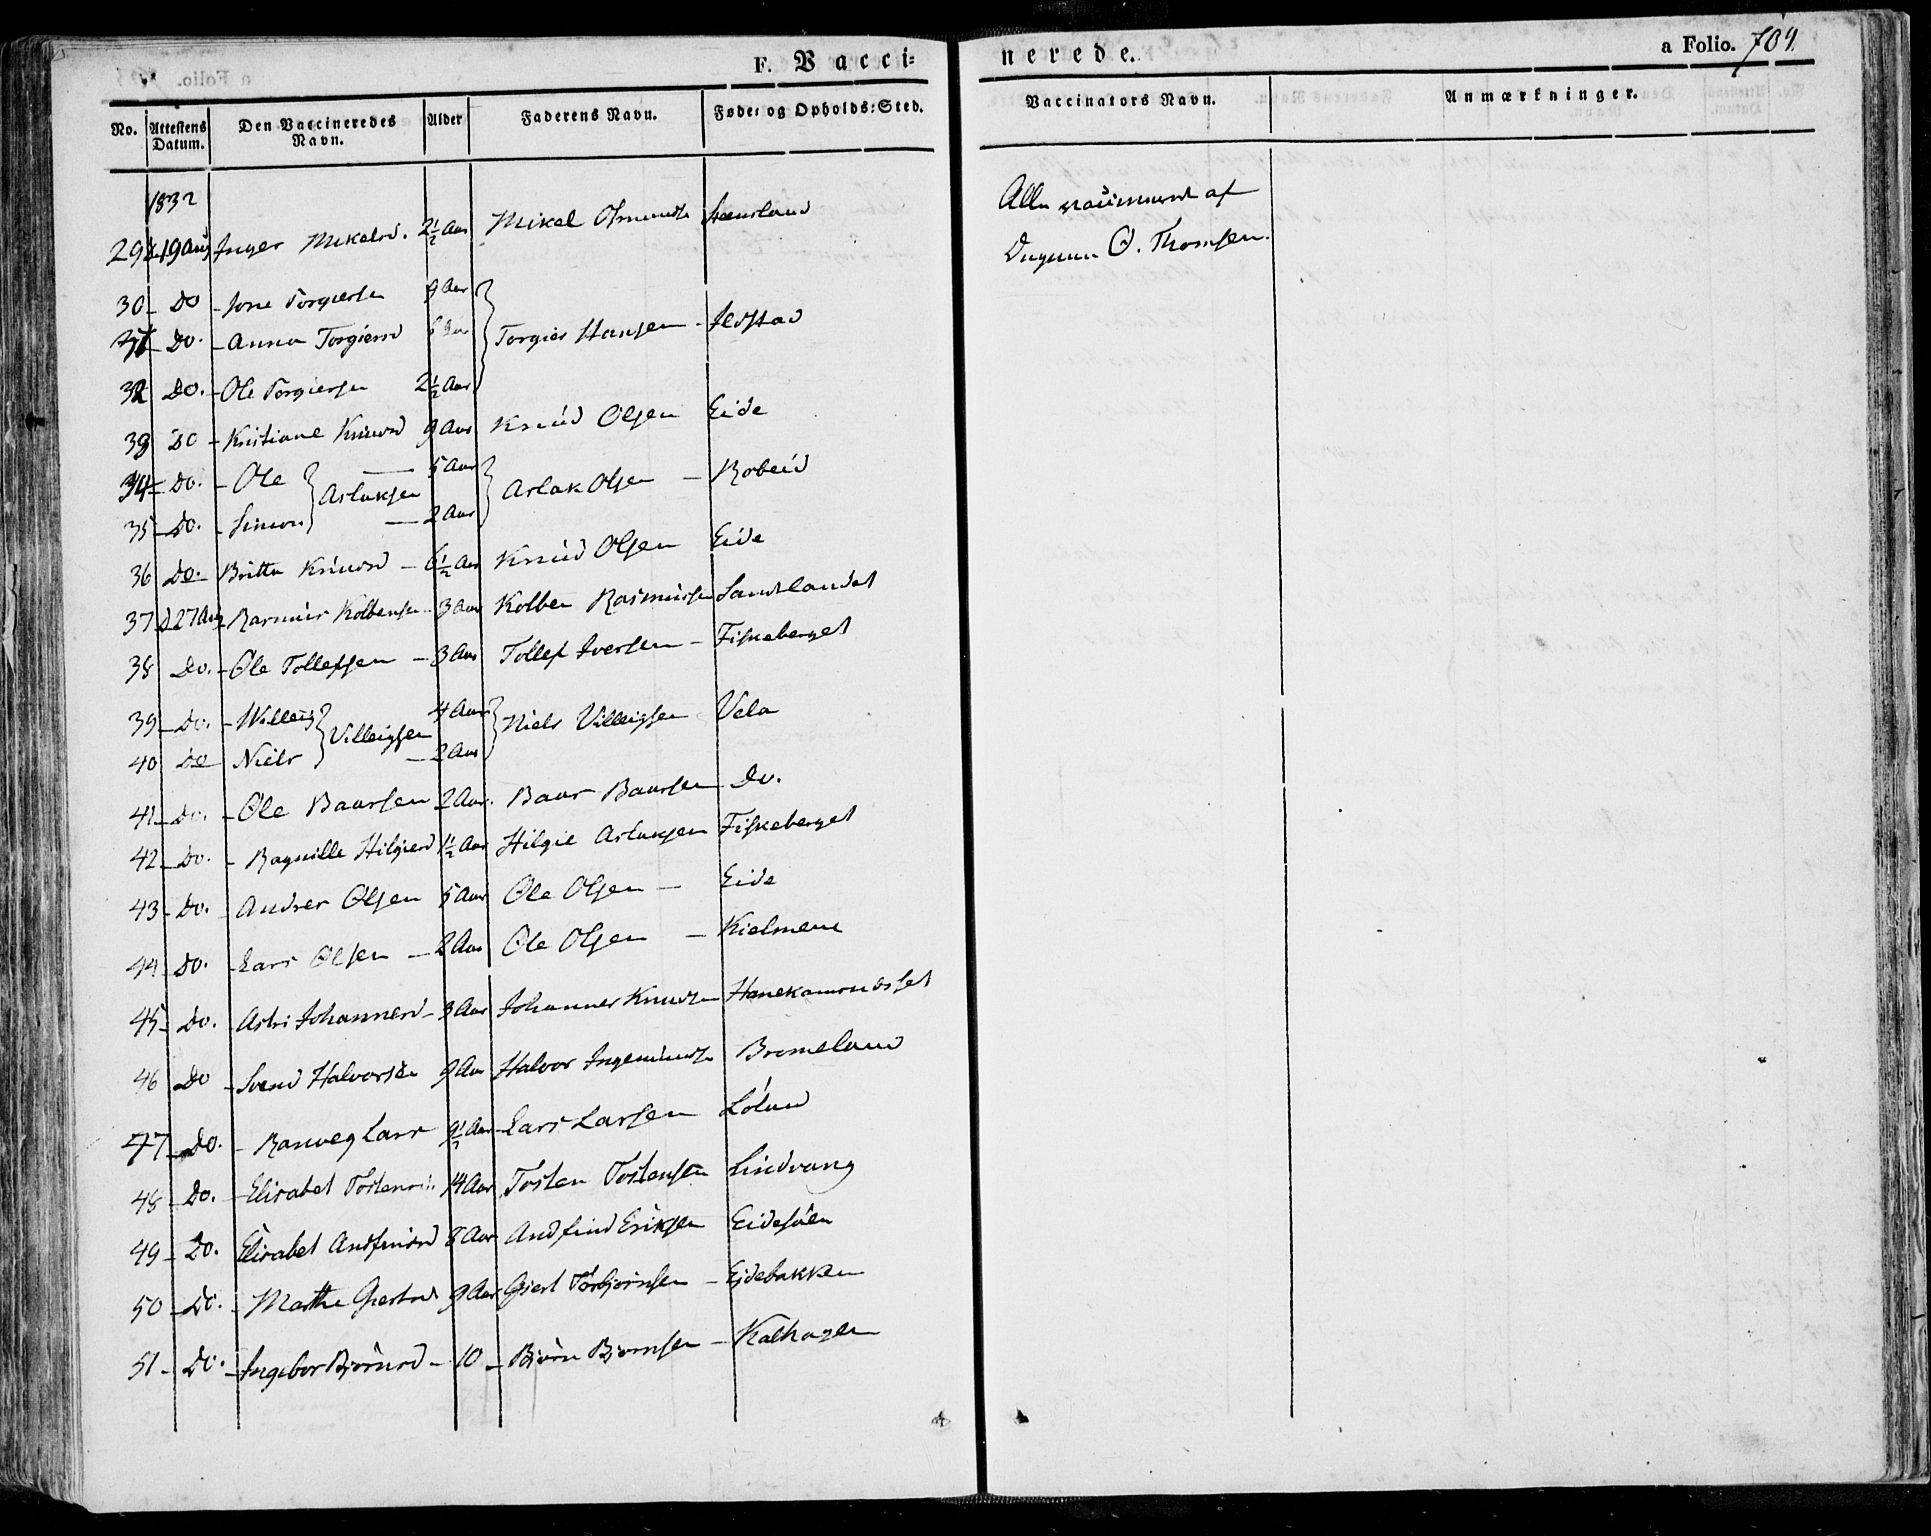 F. Vacci=
nerede.
a Folio. 704.
No. Attestens Datum. Den Vaccineredes Navn. Alder Faderens Navn. Føde- og Opholds-Sted. Vaccinators Navn. Anmærkninger.
1832
29 d. 19 Aug Inger Mikelsd. 2½ Aar Mikel Osmunds Steensland
Alle vaccineret af
O. Thomsen.
30 - Do - Jone Torgiersen 9 Aar
31 - Do. - Anna Torgiersd 6 Aar Torgier Hansen - Ildstad
32 Do. - Ole Torgiersen 2½ Aar
33 Do - Kristiane Knudsd 9 Aar Knud Olsen Eide
34 - Do. - Ole 5 Aar
Aslaksen Aslak Olsen - Robeid
35 - Do. - Simon 2 Aar
36 Do. Britta Knudsd - 6½ Aar Knud Olsen Eide
37 d 27 Aug Rasmus Kolbensen - 3 Aar Kolben Rasmusen Sandslandet
38 Do. - Ole Tollefsen - 3 Aar Tollef Iversen - Fiskeberget
39 - Do. - Willeig 4 Aar
Villeigsen Niels Villeigsen Vela
40 Do Niels - 2 Aar
41 - Do. - Ole Baarsen 2 Aar. Baar Baarsen Do.
42 - Do. - Ragnille Hilgiesd 1½ Aar Hilgie Aslaksen Fiskeberget
43 - Do. Andres Olsen 5 Aar Ole Olsen - Eide
44 - Do. - Lars Olsen - 2 Aar Ole Olsen - Kielmene
45 - Do. - Astri Johannesd - 3 Aar Johannes Knudsen Hanekamsødset
46 Do - Svend Halvorsen 9 Aar Halvor Ingemunds Bromeland
47 - Do. - Ranveg Lars 9½ Aar - Lars Larsen Lóland
48 - Do. - Elisabet Tostens 14 Aar Tosten Tostensen Lindvang
49 - Do. Elisabet Andfindsd 8 Aar Andfind Eriksen Eidesøen
50 - Do. - Marthe Giertsd 9 Aar Giert Torbjørnsen - Ejdebakken
51 - Do. - Ingebor Bjørnsd - 10 - Bjørn Bjørnsen - Kalhagen